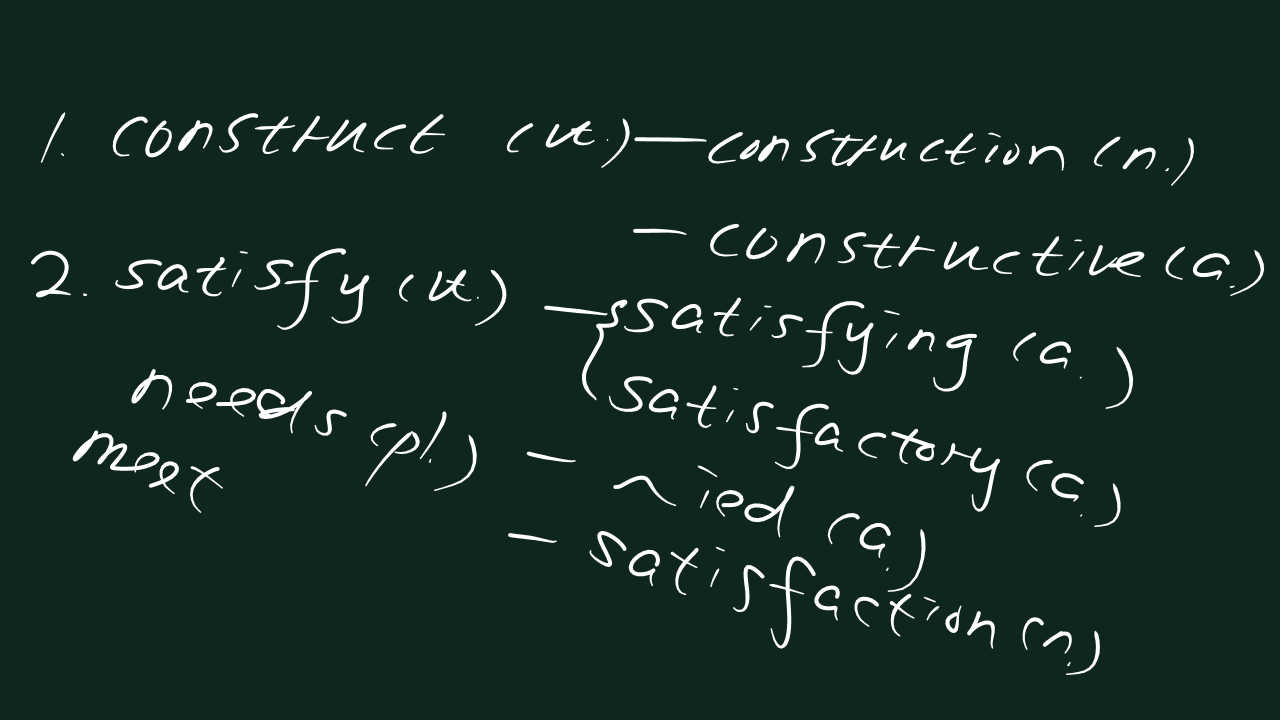 1. construct (vt.) — construction (n.)
— constructive (a.)
2. satisfy (vt.) — { satisfying (a.)
satisfactory (a.)
needs (pl.) — ~ied (a.)
meet
— satisfaction (n.)